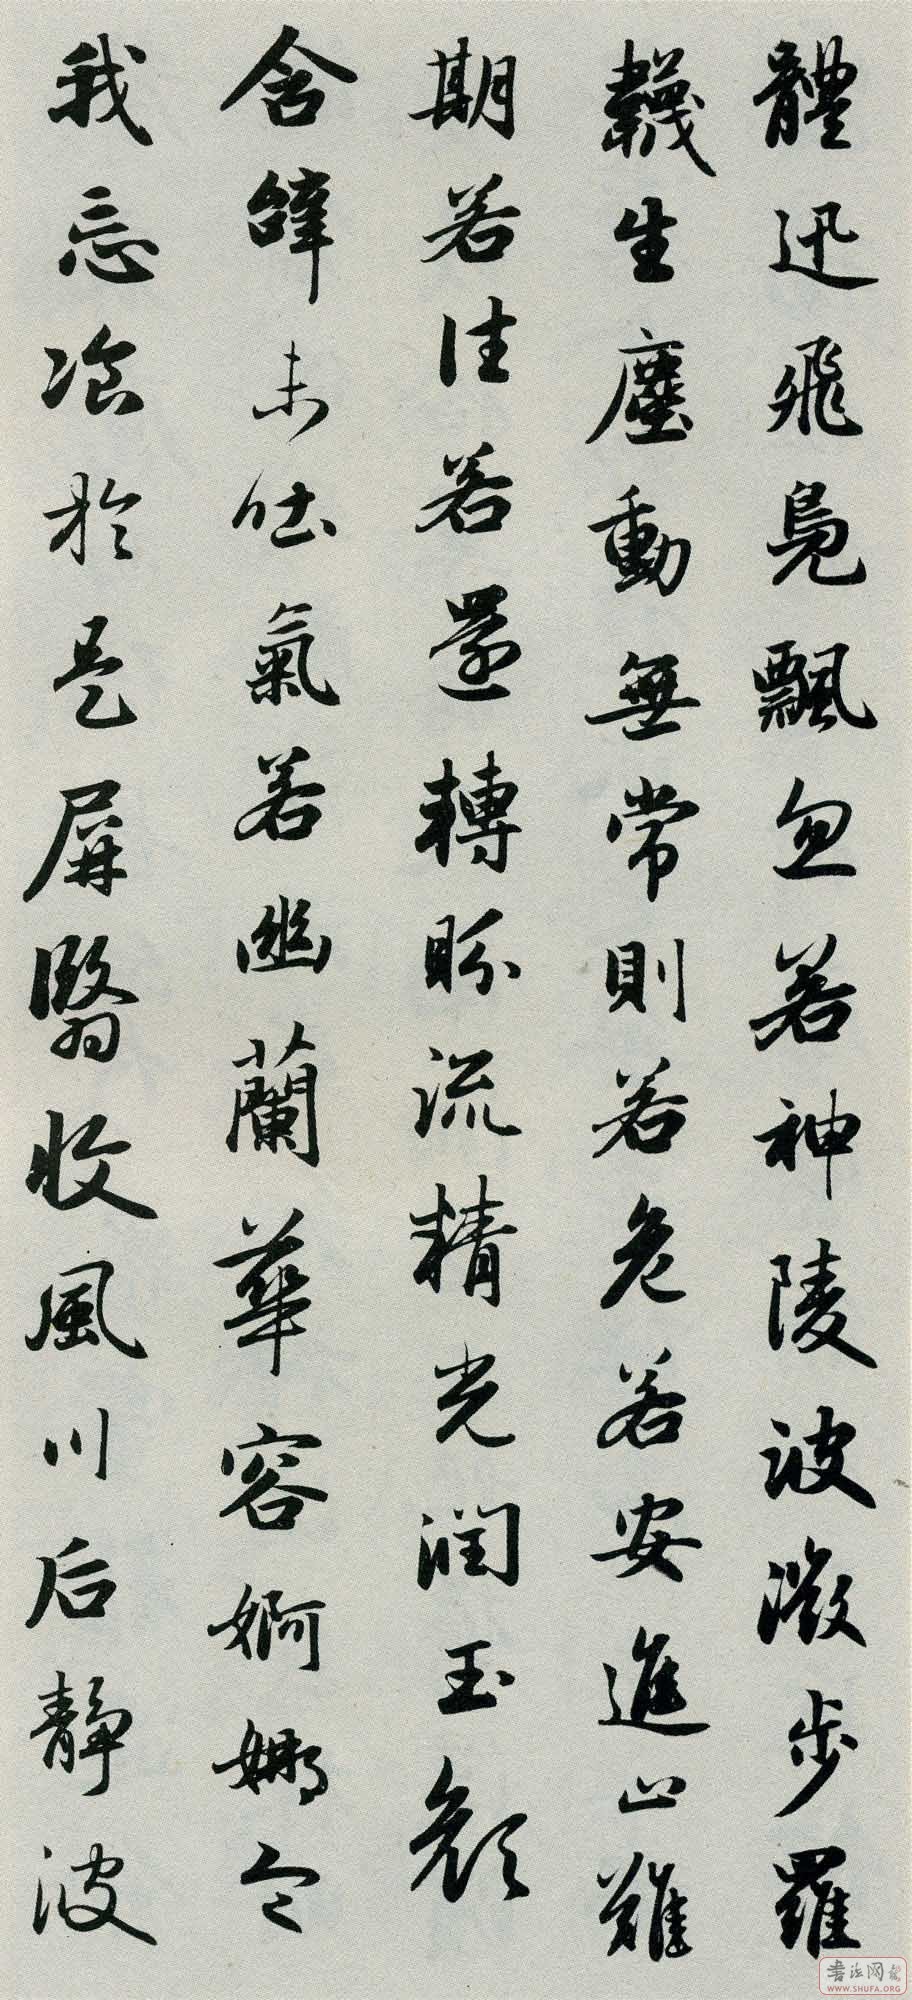 體迅飛鳧飄忽若神陵波微步羅
韈生塵動無常則若危若安進止難
期若往若還轉眄流精光潤玉顏
含辭未吐氣若幽蘭華容婀娜令
我忘飡於是屏翳收風川后靜波
書法网
WWW.SHUFA.ORG